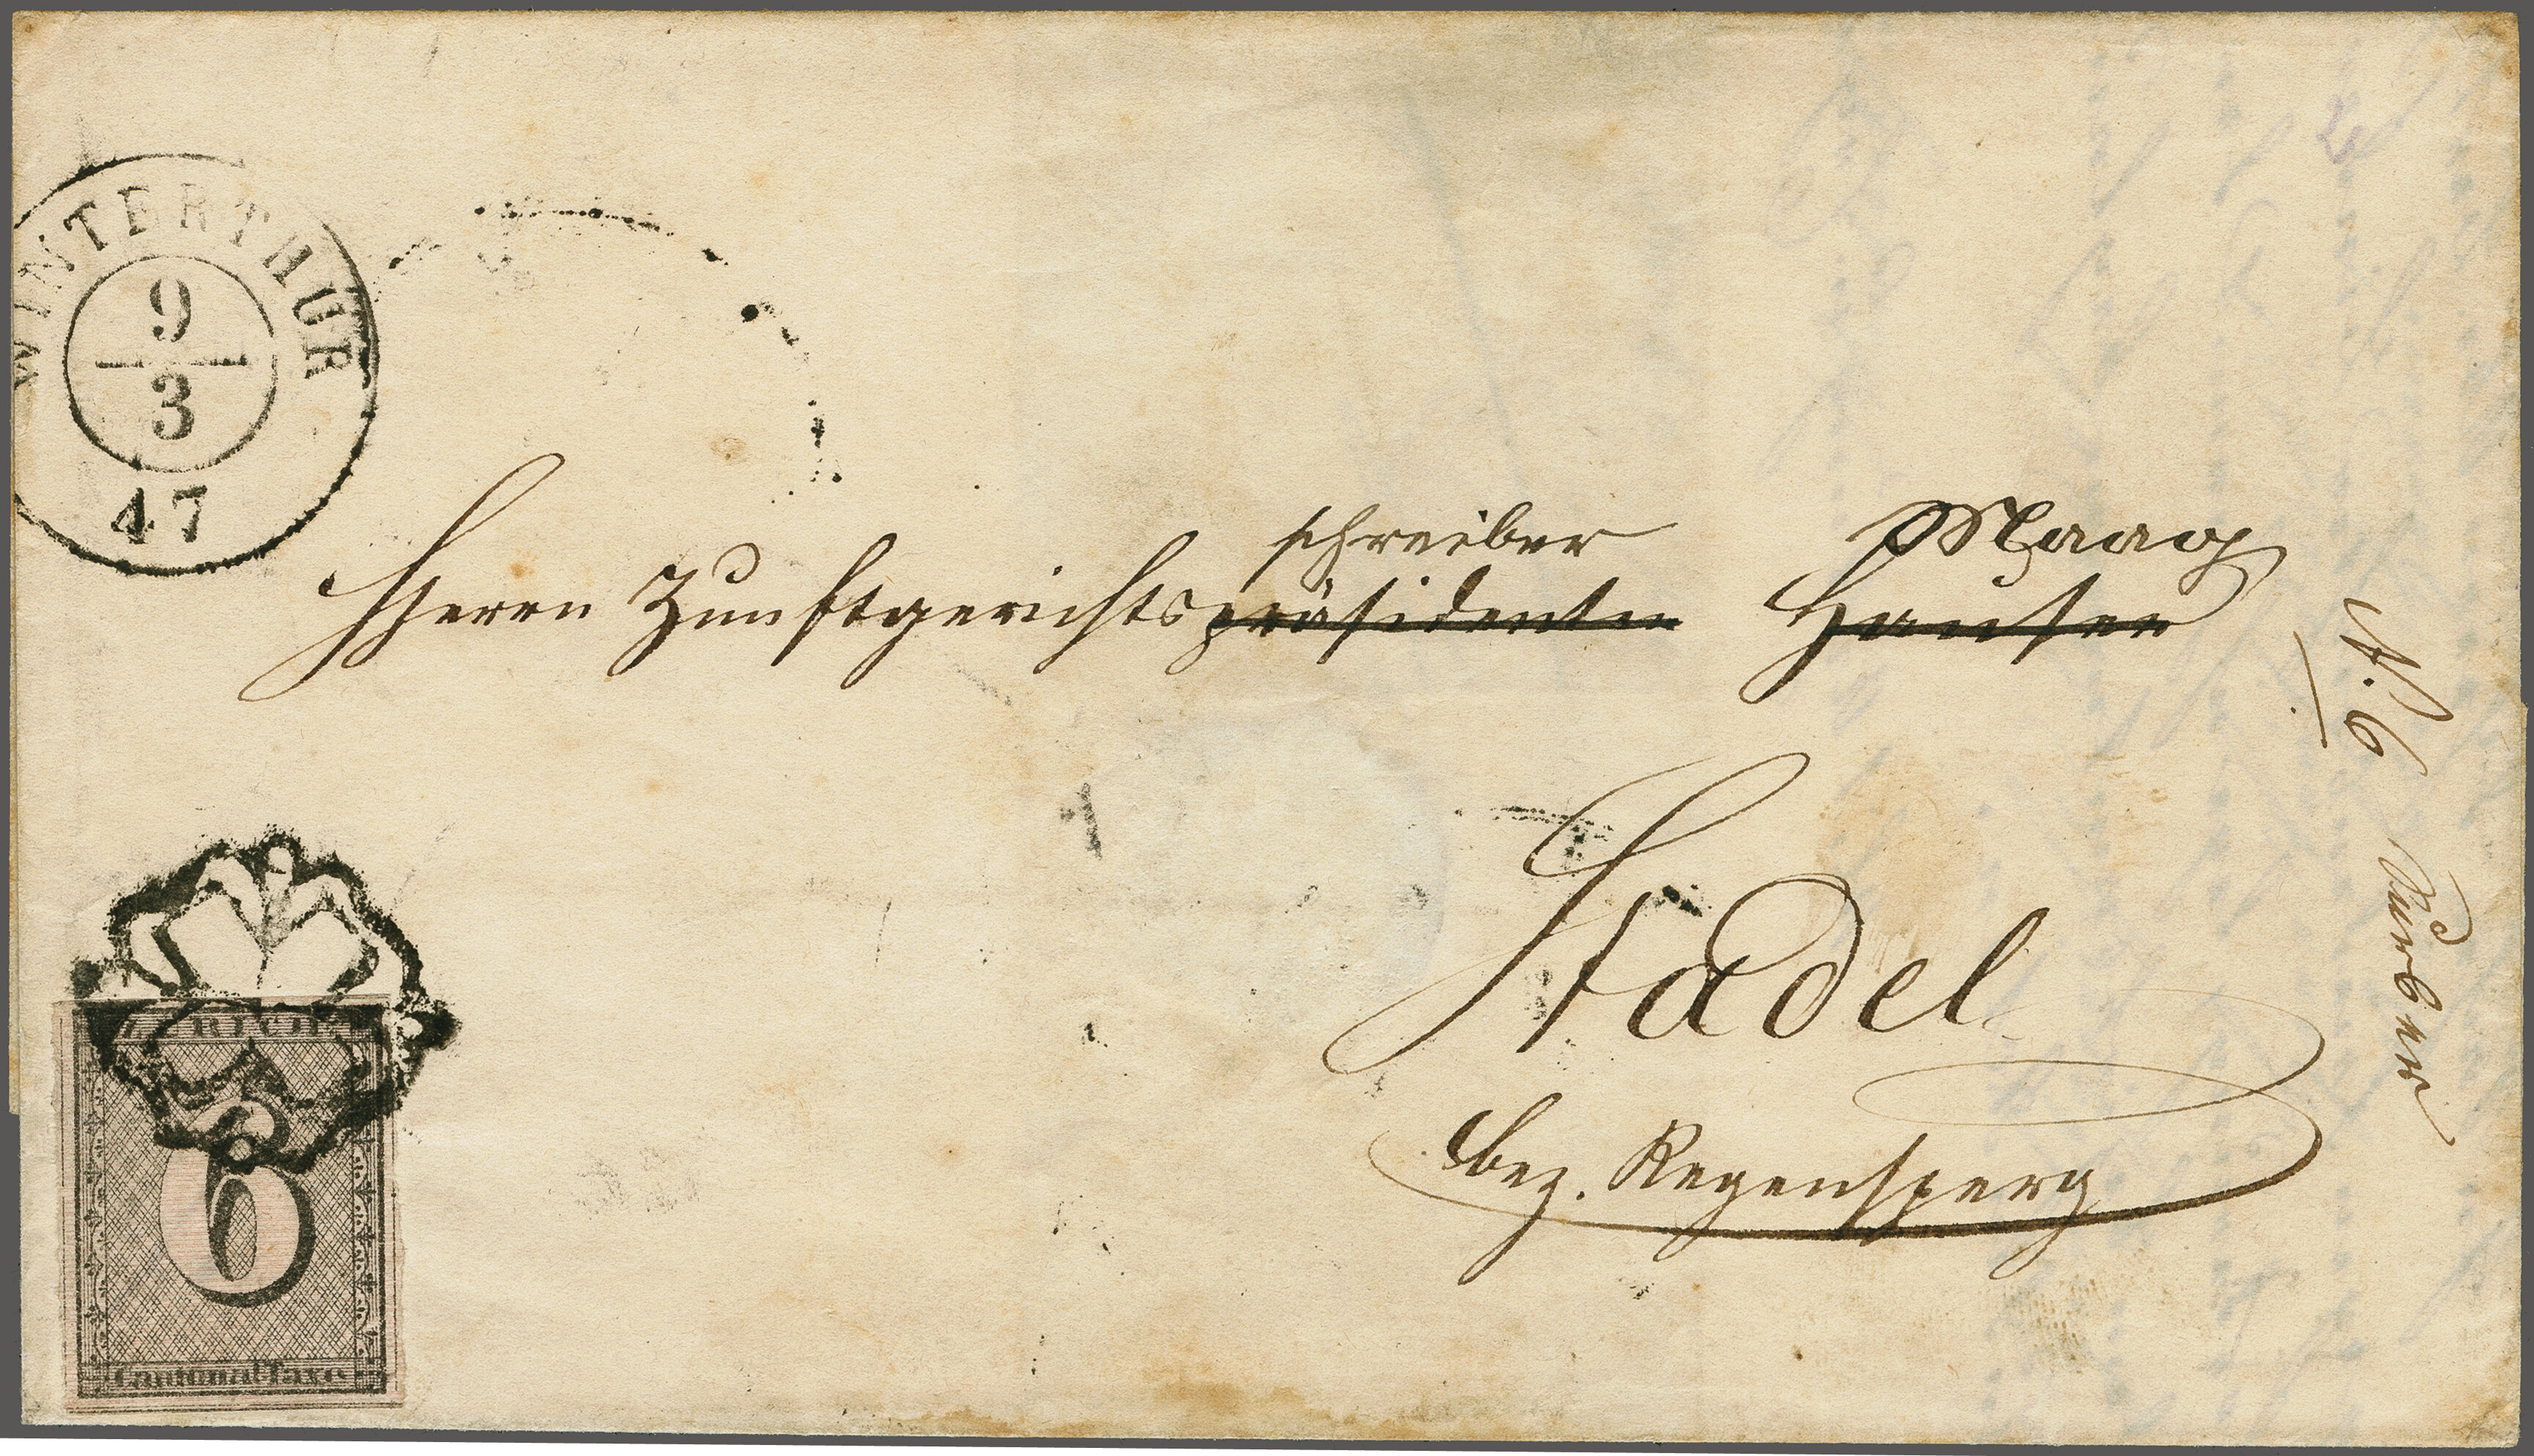 WINTERTHUR
9
3
47
schreiber Maag
Herrn Zunftgerichtspräsidenten Hauser
Stadel
bez. Regensperg
N. 6
ZÜRICH
6
Cantonal-Taxe